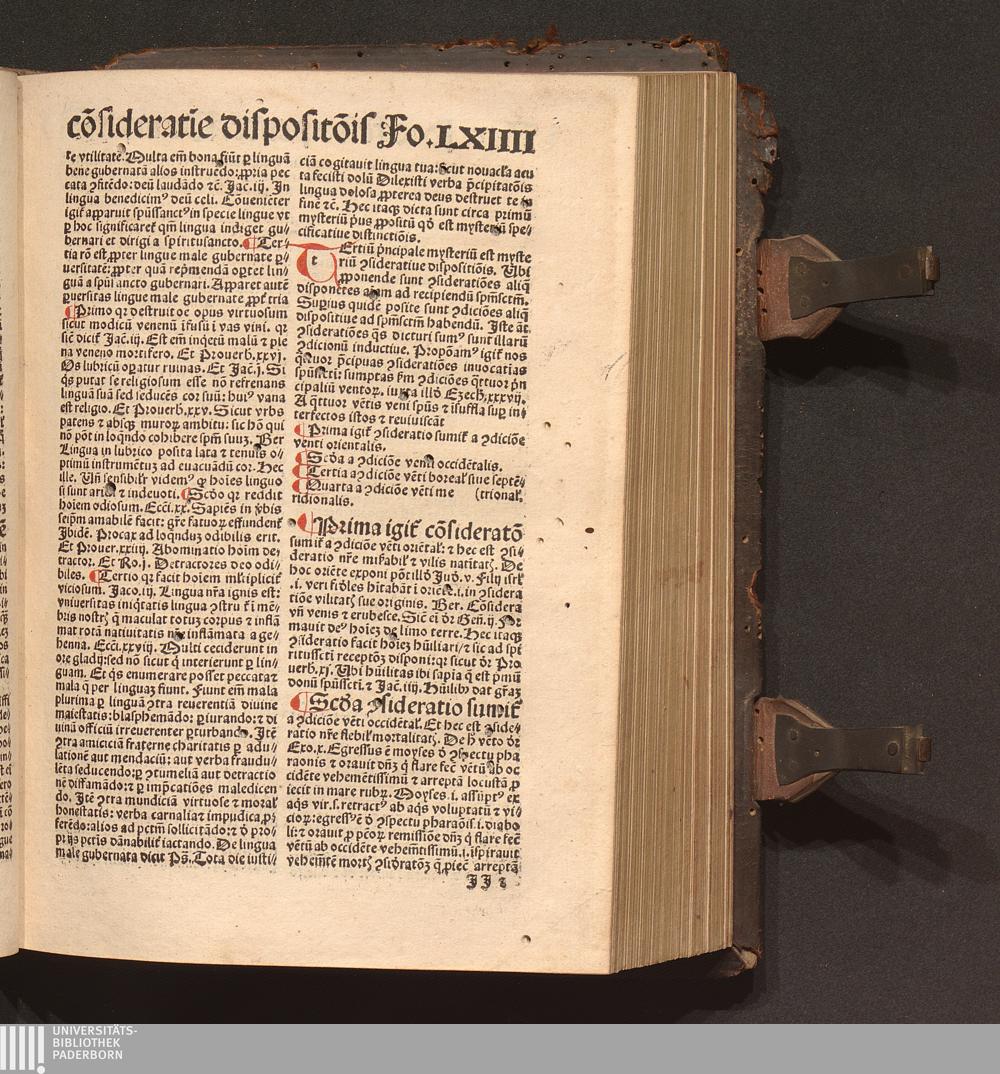 cōsideratīe dispositōis Fo.LXIIII
te vtilitatē. Multa em̄ bona fiūt ꝑ linguā
bene gubernatā alios instruēdo: ꝓpria pec
cata ꝯfitēdo: deū laudādo ⁊c̄. Jac.iij. In
lingua benedicimꝰ deū celi. Cōuenieter
igiť apparuit spūssanctꝰ in specie lingue vt
ꝑ hoc significaret qm̄ lingua indiget gu⸗
bernari et dirigi a spiritusancto. ¶Ter⸗
tia rō est ꝓpter lingue male gubernate ꝑ⸗
uersitatē: ꝓpter quā rep̄mendā oꝑtet lin⸗
guā a spūsancto gubernari. Apparet autē
ꝑuersitas lingue male gubernate ꝓpť tria
¶Primo qꝛ destruit oē opus virtuosum
sicut modicū venenū īfusū ī vas vini. qꝛ
sic̄ dicit Jac.iij. Est em̄ inq̇etū malū ⁊ ple
na veneno mortifero. Et Prouerb.xxvj.
Os lubricū oꝑatur ruinas. Et Jac.j. Si
q̇s putat se religiosum esse nō refrenans
linguā suā sed seducēs cor suū: huiꝰ vana
est religio. Et Prouerb.xxv. Sicut vrbs
patens ⁊ absqꝫ muroꝝ ambitu: sic hō qui
nō pōt in loqn̄do cohibere spm̄ suuꝫ. Ber
Lingua in lubrico posita lata ⁊ tenuis o⸗
ptimū instrumētuꝫ ad euacuādū cor. Hec
ille. Vn̄ sensibiłr videmꝰ ꝙ hoīes linguo
si sunt aridi ⁊ indeuoti. ¶Scḋo qꝛ reddit
hoīem odiosum. Ecci.xx. Sapiēs in v̄bis
seip̄m amabilē facit: gr̄e fatuoꝝ effundenť
Ibidē. Procax ad loqn̄duꝫ odibilis erit.
Et Prouer.xxiiij. Abominatio hoīm de⸗
tractor. Et Ro.j. Detractores deo odi⸗
biles. ¶Tertio qꝛ facit hoīem mľtipliciť
viciosum. Jaco.iij. Lingua nr̄a ignis est:
vniuersitas iniq̇tatis lingua ꝯstruť ī mē⸗
bris nostꝝ q̄ maculat totuꝫ corpus ⁊ inflā
mat rotā natiuitatis nr̄e inflāmata a ge⸗
henna. Ecci.xxviij. Multi ceciderunt in
ore gladij: sed nō sicut q̇ interierunt ꝑ lin⸗
guam. Et q̇s enumerare posset peccata ⁊
mala q̄ per linguaꝫ fiunt. Fiunt em̄ mala
plurima ꝑ linguā ꝯtra reuerentiā diuine
maiestatis: blasphemādo: ꝑiurando: ⁊ di
uinā officiū irreuerenter ꝑturbando. Itē
ꝯtra amiciciā fraterne charitatis ꝑ adu⸗
lationē aut mendaciū: aut verba fraudu⸗
lēta seducendo: ꝑ ꝯtumeliā aut detractio
nē diffamādo: ⁊ ꝑ imp̄catiōes maledicen
do. Itē ꝯtra mundiciā virtuose ⁊ moral
honestatis: verba carnalia ⁊ impudica ꝓ
ferēdo: alios ad pctm̄ sollicitādo: ⁊ ḋ pro⸗
prijs pctīs dānabiliť iactando. De lingua
male gubernata dicit Pš. Tota die iusti⸗
ciā cogitauit lingua tua: sicut nouacľa acu
ta fecisti dolū Dilexisti verba p̄cipitatōis
lingua dolosa ꝓpterea deus destruet te in
finē ⁊c̄. Hec itaqꝫ dicta sunt circa primū
mysteriū pͥus ꝓpositū qḋ est mysteriū spe⸗
cificatiue distinctiōis.
TErtiū pͥncipale mysteriū est myste
riū ꝯsideratiue dispositiōis. Vbi
ꝓponende sunt ꝯsideratiōes aliq̄
disponētes aīam ad recipiendū spm̄sctm̄.
Suꝑius quidē posite sunt ꝯdiciōes aliq̄
dispositiue ad spm̄sctm̄ habendū. Iste āt
ꝯsideratiōes q̄s dicturi sumꝰ sunt illarū
ꝯdicionū inductiue. Propōamꝰ igiť nos
q̈tuor p̄cipuas ꝯsideratiōes inuocatiuas
spūsscti: sumptas ẜm ꝯdiciōes q̈ttuor pͥn
cipaliū ventoꝝ. iuxta illḋ Ezech.xxxvij.
A q̈ttuor vētis veni spūs ⁊ isuffla suꝑ in⸗
terfectos istos ⁊ reuiuiscāt
¶Prima igiť ꝯsideratio sumiť a ꝯdiciōe
venti orientalis.
¶Scḋa a ꝯdiciōe venti occidētalis.
¶Tertia a ꝯdiciōe vēti boreať siue septē⸗
¶Quarta a ꝯdiciōe vēti me (trionaľ.
ridionalis.
¶Prima igiť cōsideratō
sumiť a ꝯdiciōe vēti oriētaľ: ⁊ hec est ꝯsi⸗
deratio nr̄e mirabiľ ⁊ vilis natītatꝭ. De
hoc oriēte exponi pōt illḋ Juḋ.v. Filij isrľ
.i. veri fiḋles hītabāt ī oriēte .i. in ꝯsidera
tiōe vilitatꝭ sue originis. Ber. Cōsidera
vn̄ venis ⁊ erubesce. Sic̄ ei ḋr Gen̄.ij. For
mauit deꝰ hoīeꝫ de limo terre. Hec itaqꝫ
ꝯsideratio facit hoīeꝫ hūiliari ⁊ sic ad spī
ritussctī receptōꝫ disponi: qꝛ sicut ḋr Pro
uerb.xj. Vbi hūilitas ibi sapīa q̄ est pͥmū
donū spūsscti. ⁊ Jac.iiij. Hūilibꝰ dat gr̄aꝫ
¶Scḋa ꝯsideratio sumiť
a ꝯdiciōe vēti occidētaľ. Et hec est ꝯside⸗
ratio nr̄e flebiľ mortalitatꝭ. De h̄ vēto ḋr
Exo.x. Egressus ē moyses ḋ ꝯspectu pha
raonis ⁊ orauit dn̄ꝫ q̇ flare fec̄ vētū ab oc
cidēte vehemētissimū ⁊ arreptā locustā ꝓ
iecit in mare rubꝝ. Moyses .i. assūptꝰ ex
aq̄s vir.s. retractꝰ ab aq̄s voluptatū ⁊ vi⸗
cioꝝ: egressꝰ ē ḋ ꝯspectu pharaōis .i. diabo
li: ⁊ orauit ꝓ pc̄oꝝ remissiōe dn̄ꝫ q̇ flare fec̄
vētū ab occidēte vehem̄tissimū .i. īspirauit
vehem̄tē mortꝭ ꝯsiḋratōꝫ q̄ ꝓiec̄ arreptā
JJ 2
UNIVERSITÄTS-
BIBLIOTHEK
PADERBORN